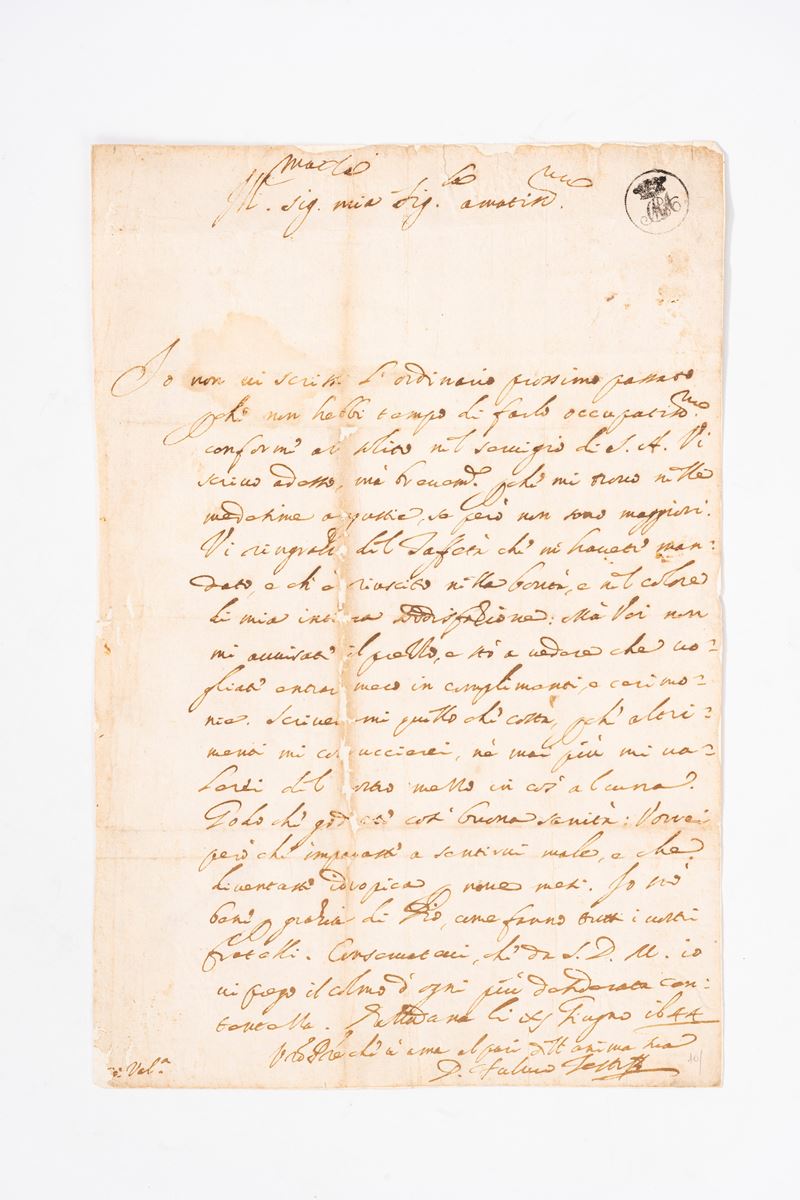 Ill. sig. mia sig. amatiss.
Io non vi scrissi l'ordinario prossimo passato
p'chè non hebbi tempo di farlo occupatiss.mo
conforme al solito nel servigio di S. A. Vi
scrivo adesso, mà brevem.te p'chè mi trovo nelle
medesime angustie, se però non sono maggiori.
Vi ringratio del Taffetà che mi havete man=
dato, e ch'è riuscito nella bontà, e nel colore
di mia intera sodisfazione: Mà Voi non
mi avvisate il prezzo, e stò a vedere che vo=
gliate entrar meco in complimenti, e cerimo=
nie. Scrivetemi quello che costa, p'chè altri=
menti mi corruccierei, nè mai più mi va=
lerei del vostro mezzo in cos' alcuna.
Godo che godiate così buona sanità: Vorrei
però che imparaste a sentirvi male, e che
diventaste idropica nove mesi. Io stò
bene grazia di Dio, come fanno tutti i vostri
fratelli. Conservatevi, che da S. D. M. io
vi prego il colmo d'ogni più desiderata con=
tentezza. li Giugno 1644
Vro Pre che v'ama al pari dell'anima sua
D. Fulvio Testi